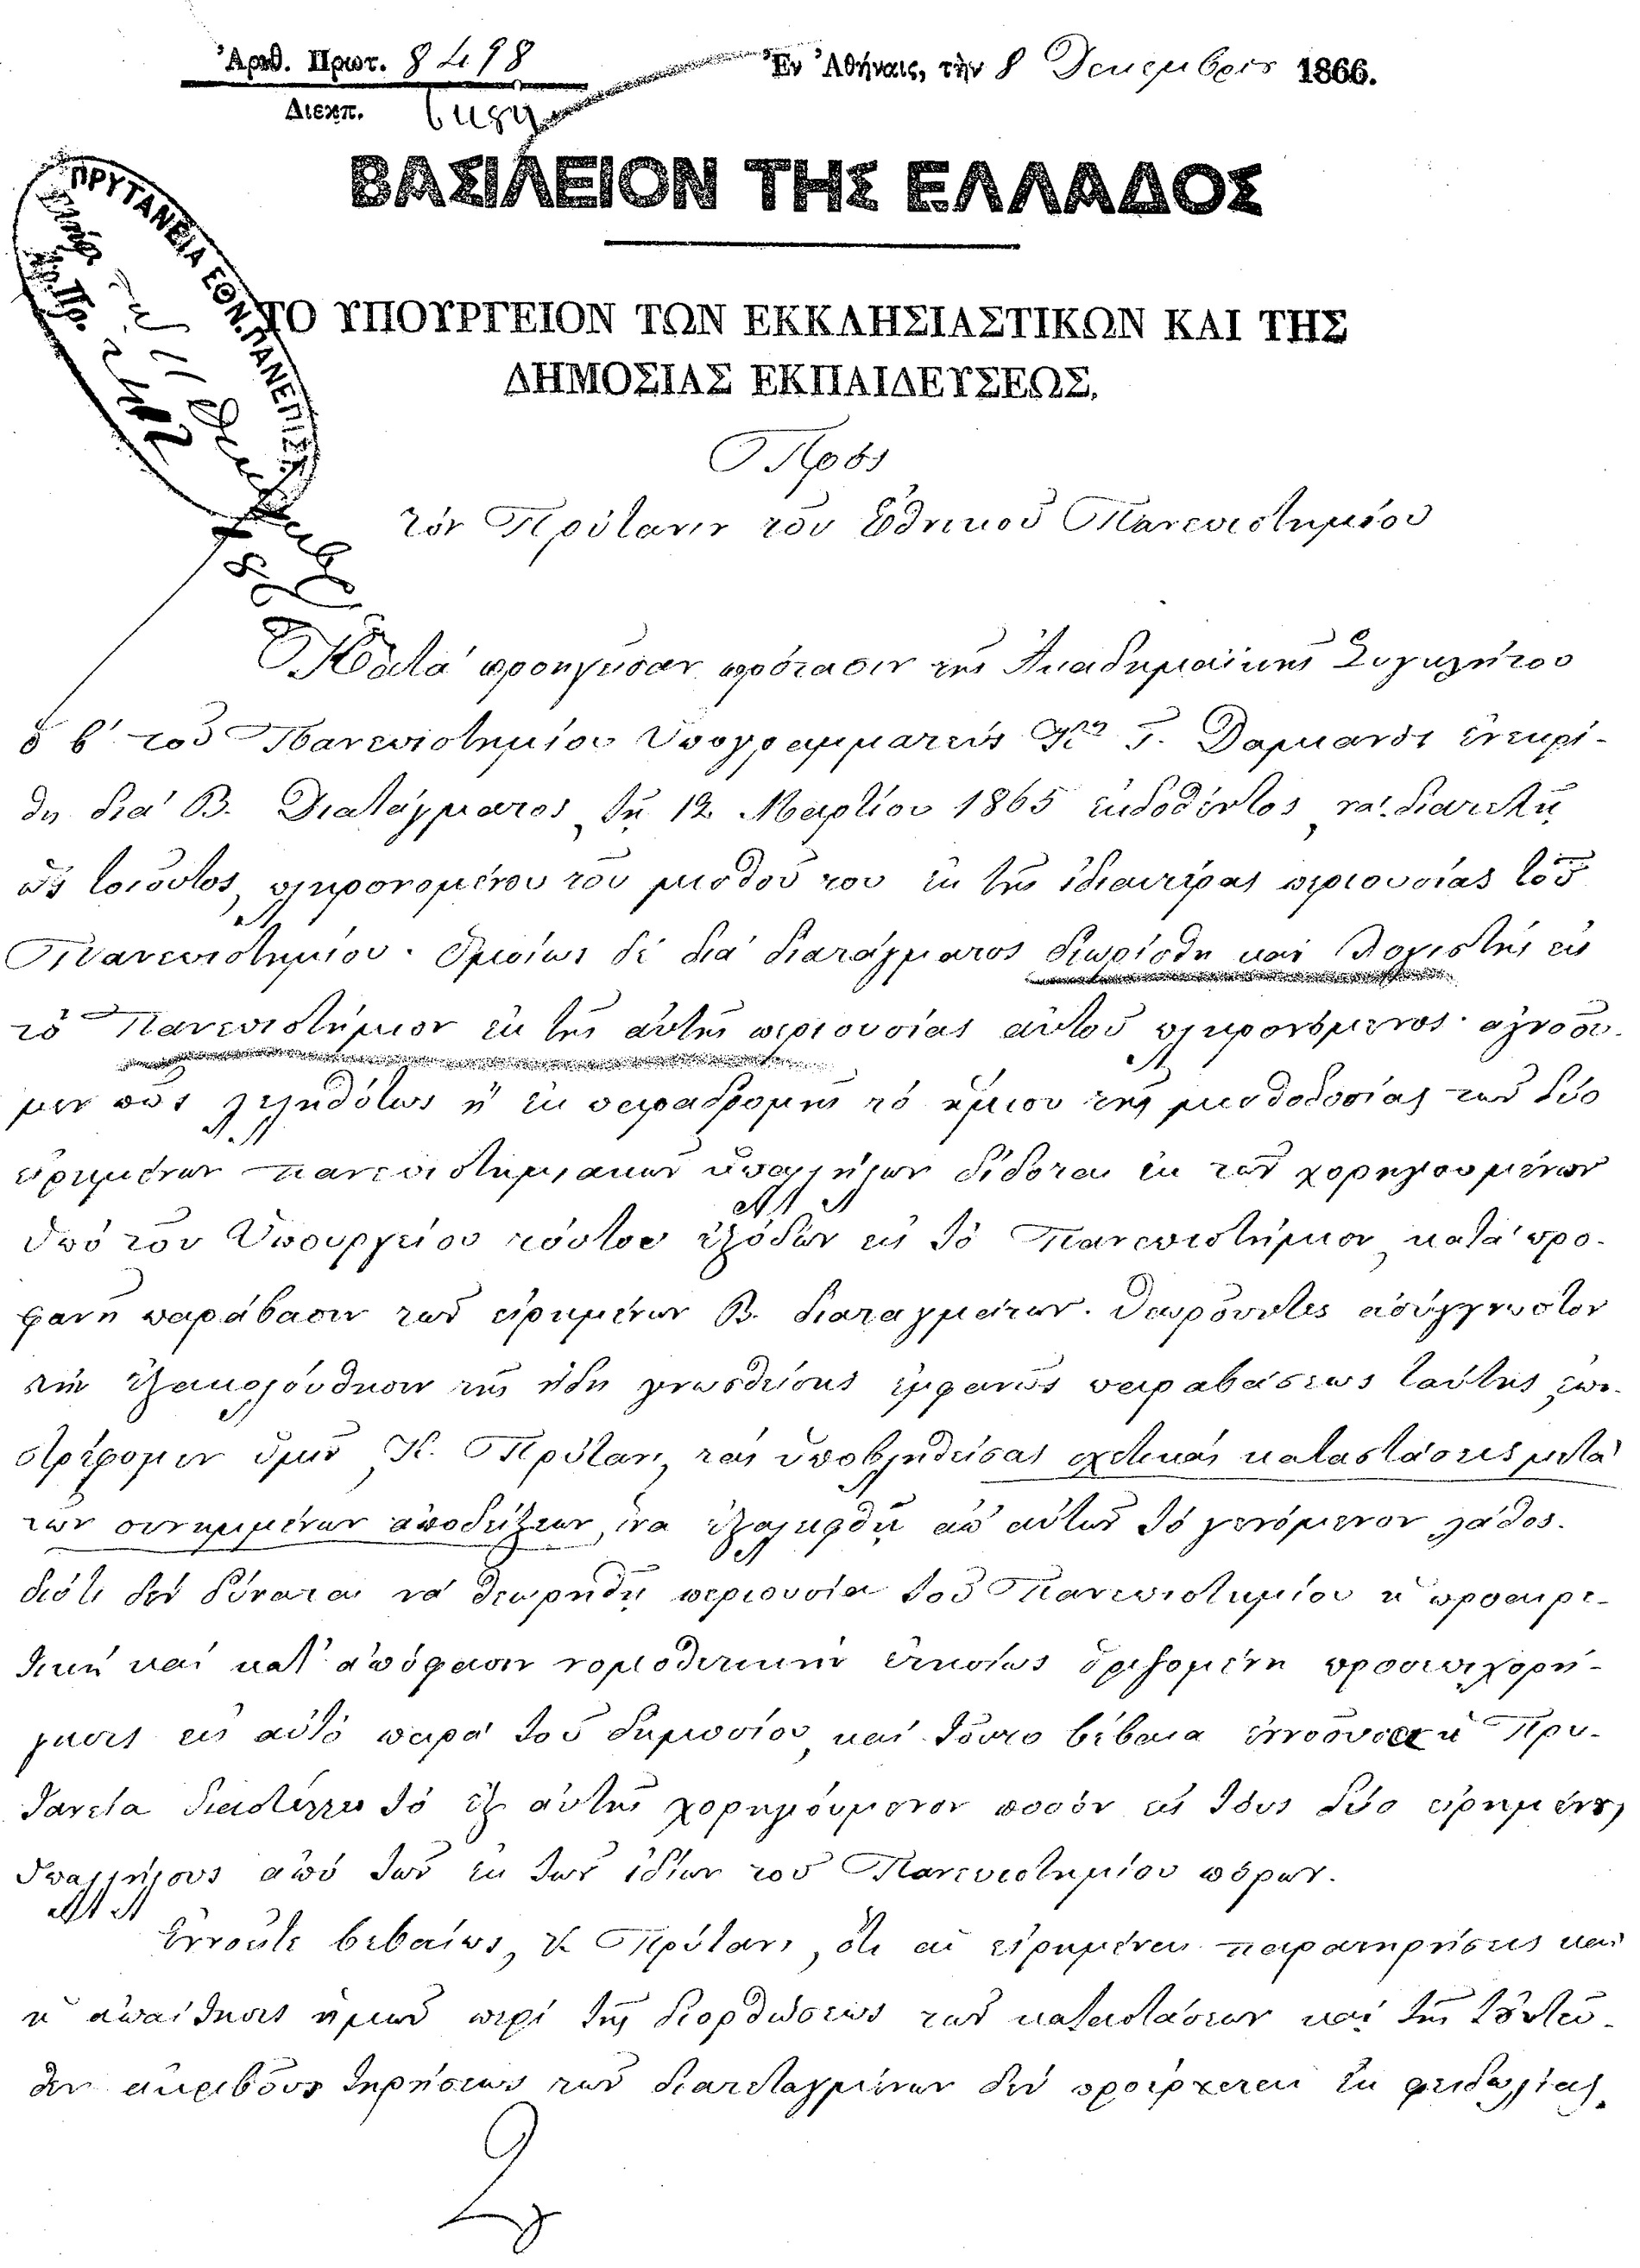 Ἀριθ. Πρωτ. 8498
Διεκπ.
Ἐν Ἀθήναις, τὴν 8 Δεκεμβρίου 1866.
ΠΡΥΤΑΝΕΙΑ ΕΘΝ. ΠΑΝΕΠΙΣΤ.
ΒΑΣΙΛΕΙΟΝ ΤΗΣ ΕΛΛΑΔΟΣ
ΤΟ ΥΠΟΥΡΓΕΙΟΝ ΤΩΝ ΕΚΚΛΗΣΙΑΣΤΙΚΩΝ ΚΑΙ ΤΗΣ
ΔΗΜΟΣΙΑΣ ΕΚΠΑΙΔΕΥΣΕΩΣ.
Πρὸς
τὸν Πρύτανιν τοῦ Ἐθνικοῦ Πανεπιστημίου
Κατὰ προηγησαν πρότασιν τῆς Ἀκαδημαϊκῆς Συγκλήτου
ὁ β' τοῦ Πανεπιστημίου Ὑπογραμματεὺς Κος Γ. ἐνεκρί-
θη διὰ Β. Διατάγματος, τῇ 12 Μαρτίου 1865 ἐκδοθέντος, νὰ διατελῇ
ὡς τοιοῦτος, πληρονομένου τοῦ μισθοῦ του ἐκ τῆς ἰδιαιτέρας περιουσίας τοῦ
Πανεπιστημίου. Ὁμοίως δὲ διὰ διατάγματος διωρίσθη καὶ λογιστὴς εἰς
τὸ Πανεπιστήμιον ἐκ τῆς αὐτῆς περιουσίας αὐτοῦ πληρονόμενος· ἀγνοοῦ-
μεν πῶς λεληθότως ἢ ἐκ παραδρομῆς τὸ ἥμισυ τῆς μισθοδοσίας τῶν δύο
εἰρημένων πανεπιστημιακῶν ὑπαλλήλων δίδοται ἐκ τῶν χορηγουμένων
ὑπὸ τοῦ Ὑπουργείου τούτου ἐξόδων εἰς τὸ Πανεπιστήμιον, κατὰ προ-
φανῆ παράβασιν τῶν εἰρημένων Β. διαταγμάτων. Θεωροῦντες ἀσύγγνωστον
τὴν ἐξακολούθησιν τῆς ἤδη γνωσθείσης ἐμφανῶς παραβάσεως ταύτης, ἐπι-
στρέφομεν ὑμῖν, Κ. Πρύτανι, τὰς ὑποβληθείσας σχετικὰς καταστάσεις μετὰ
τῶν συνημμένων ἀποδείξεων, ἵνα ἐξαλειφθῇ ἀπ' αὐτῶν τὸ γενόμενον λάθος.
διότι δὲν δύναται νὰ θεωρηθῇ περιουσία τοῦ Πανεπιστημίου ἡ προαιρε-
τικὴ καὶ κατ' ἀπόφασιν νομοθετικὴν ἐτησίως ὁριζομένη προσεπιχορή-
γησις εἰς αὐτὸ παρὰ τοῦ δημοσίου, καὶ τοῦτο βέβαια ἐννοοῦσα ἡ Πρυ-
τανεία διαστέλλει τὸ ἐξ αὐτῆς χορηγούμενον ποσὸν εἰς τοὺς δύο εἰρημένους
ὑπαλλήλους ἀπὸ τῶν ἐκ τῶν ἰδίων τοῦ Πανεπιστημίου πόρων.
Ἐννοεῖτε βεβαίως, Κ. Πρύτανι, ὅτι αἱ εἰρημέναι παρατηρήσεις καὶ
ἡ ἀπαίτησις ἡμῶν περὶ τῆς διορθώσεως τῶν καταστάσεων καὶ τῆς τοὐντεῦ-
θεν ἀκριβοῦς τηρήσεως τῶν διατεταγμένων δὲν προέρχεται ἐκ φειδωλίας